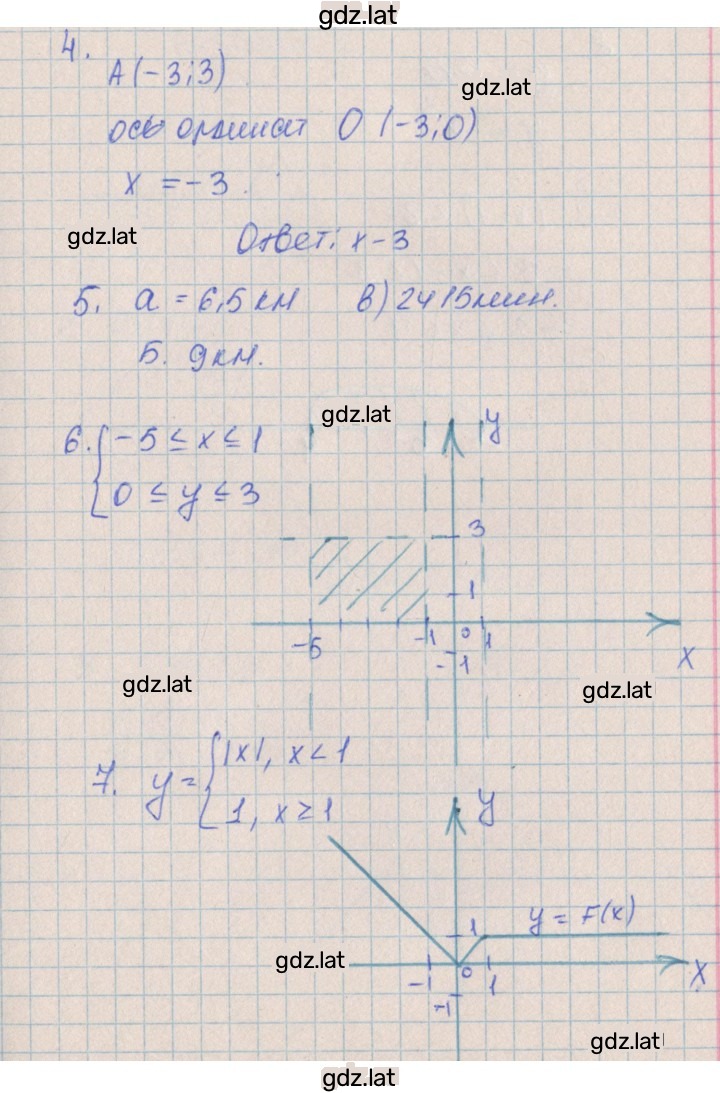 gdz.lat
4.
A(-3;3)
gdz.lat
ось ординат O (-3;0)
x = -3.
gdz.lat
Ответ: x-3
5. a = 6,5 км в) 2ч 15мин.
Б. 9км.
gdz.lat
6. { -5 ≤ x ≤ 1
0 ≤ y ≤ 3
y
3
1
-5 -1 0 1
-1
x
gdz.lat
gdz.lat
7. y = { |x|, x < 1
1, x ≥ 1
y
y = F(x)
1
gdz.lat
-1 0 1
x
-1
gdz.lat
gdz.lat